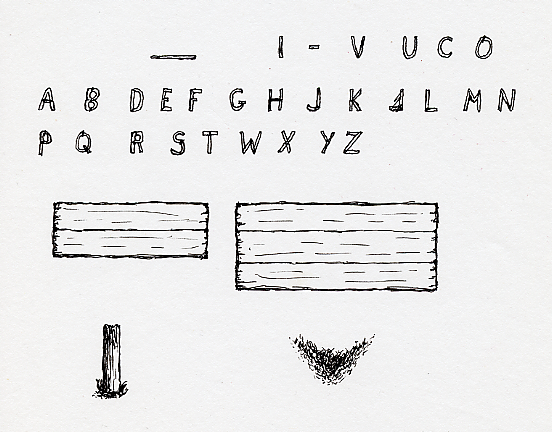 — I - V U C O
A B D E F G H J K L M N
P Q R S T W X Y Z